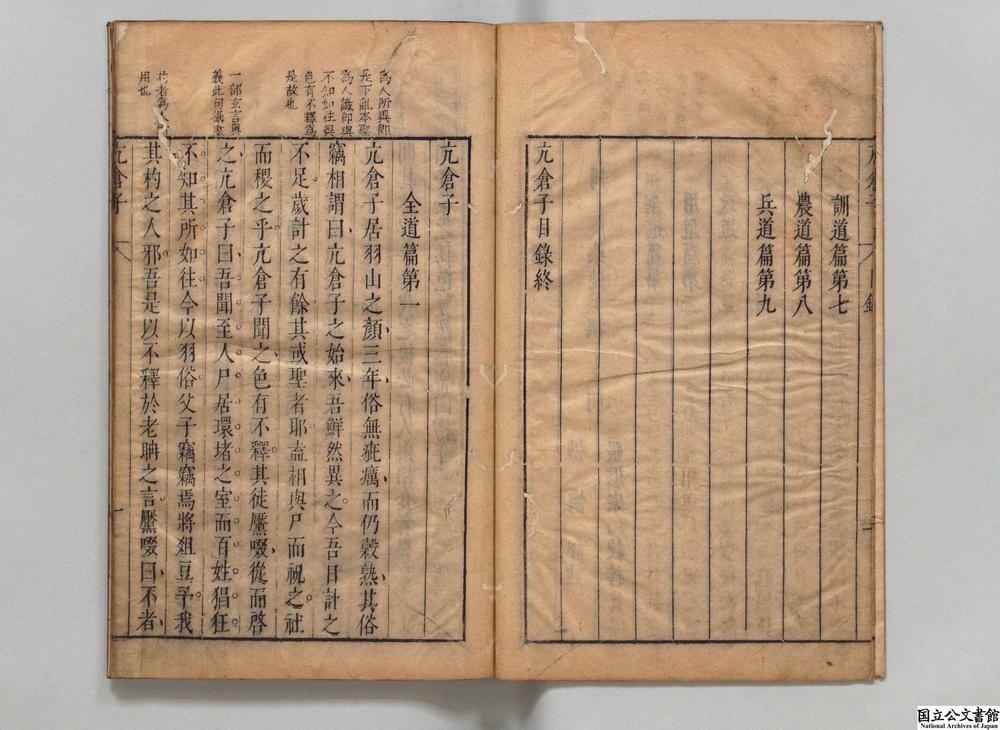 訓道篇第七
農道篇第八
兵道篇第九
亢倉子目錄終
亢倉子
全道篇第一
亢倉子居羽山之顏三年俗無疵癘而仍穀熟其俗
竊相謂曰亢倉子之始來吾鮮然異之今吾日計之
不足歲計之有餘其或聖者耶盍相與尸而祝之社
而稷之乎亢倉子聞之色有不釋其徒黶啜從而啓
之亢倉子曰吾聞至人尸居環堵之室而百姓猖狂
不知其所如往今以羽俗父子竊竊焉將俎豆予我
其杓之人邪吾是以不釋於老聃之言黶啜曰不者
為人所異即
是下亂本聖
為人識即與
不知如往異
色有不釋為
是故也
一部玄言奧
義此句
用也
亢倉子
一
国立公文書館
National Archives of Japan